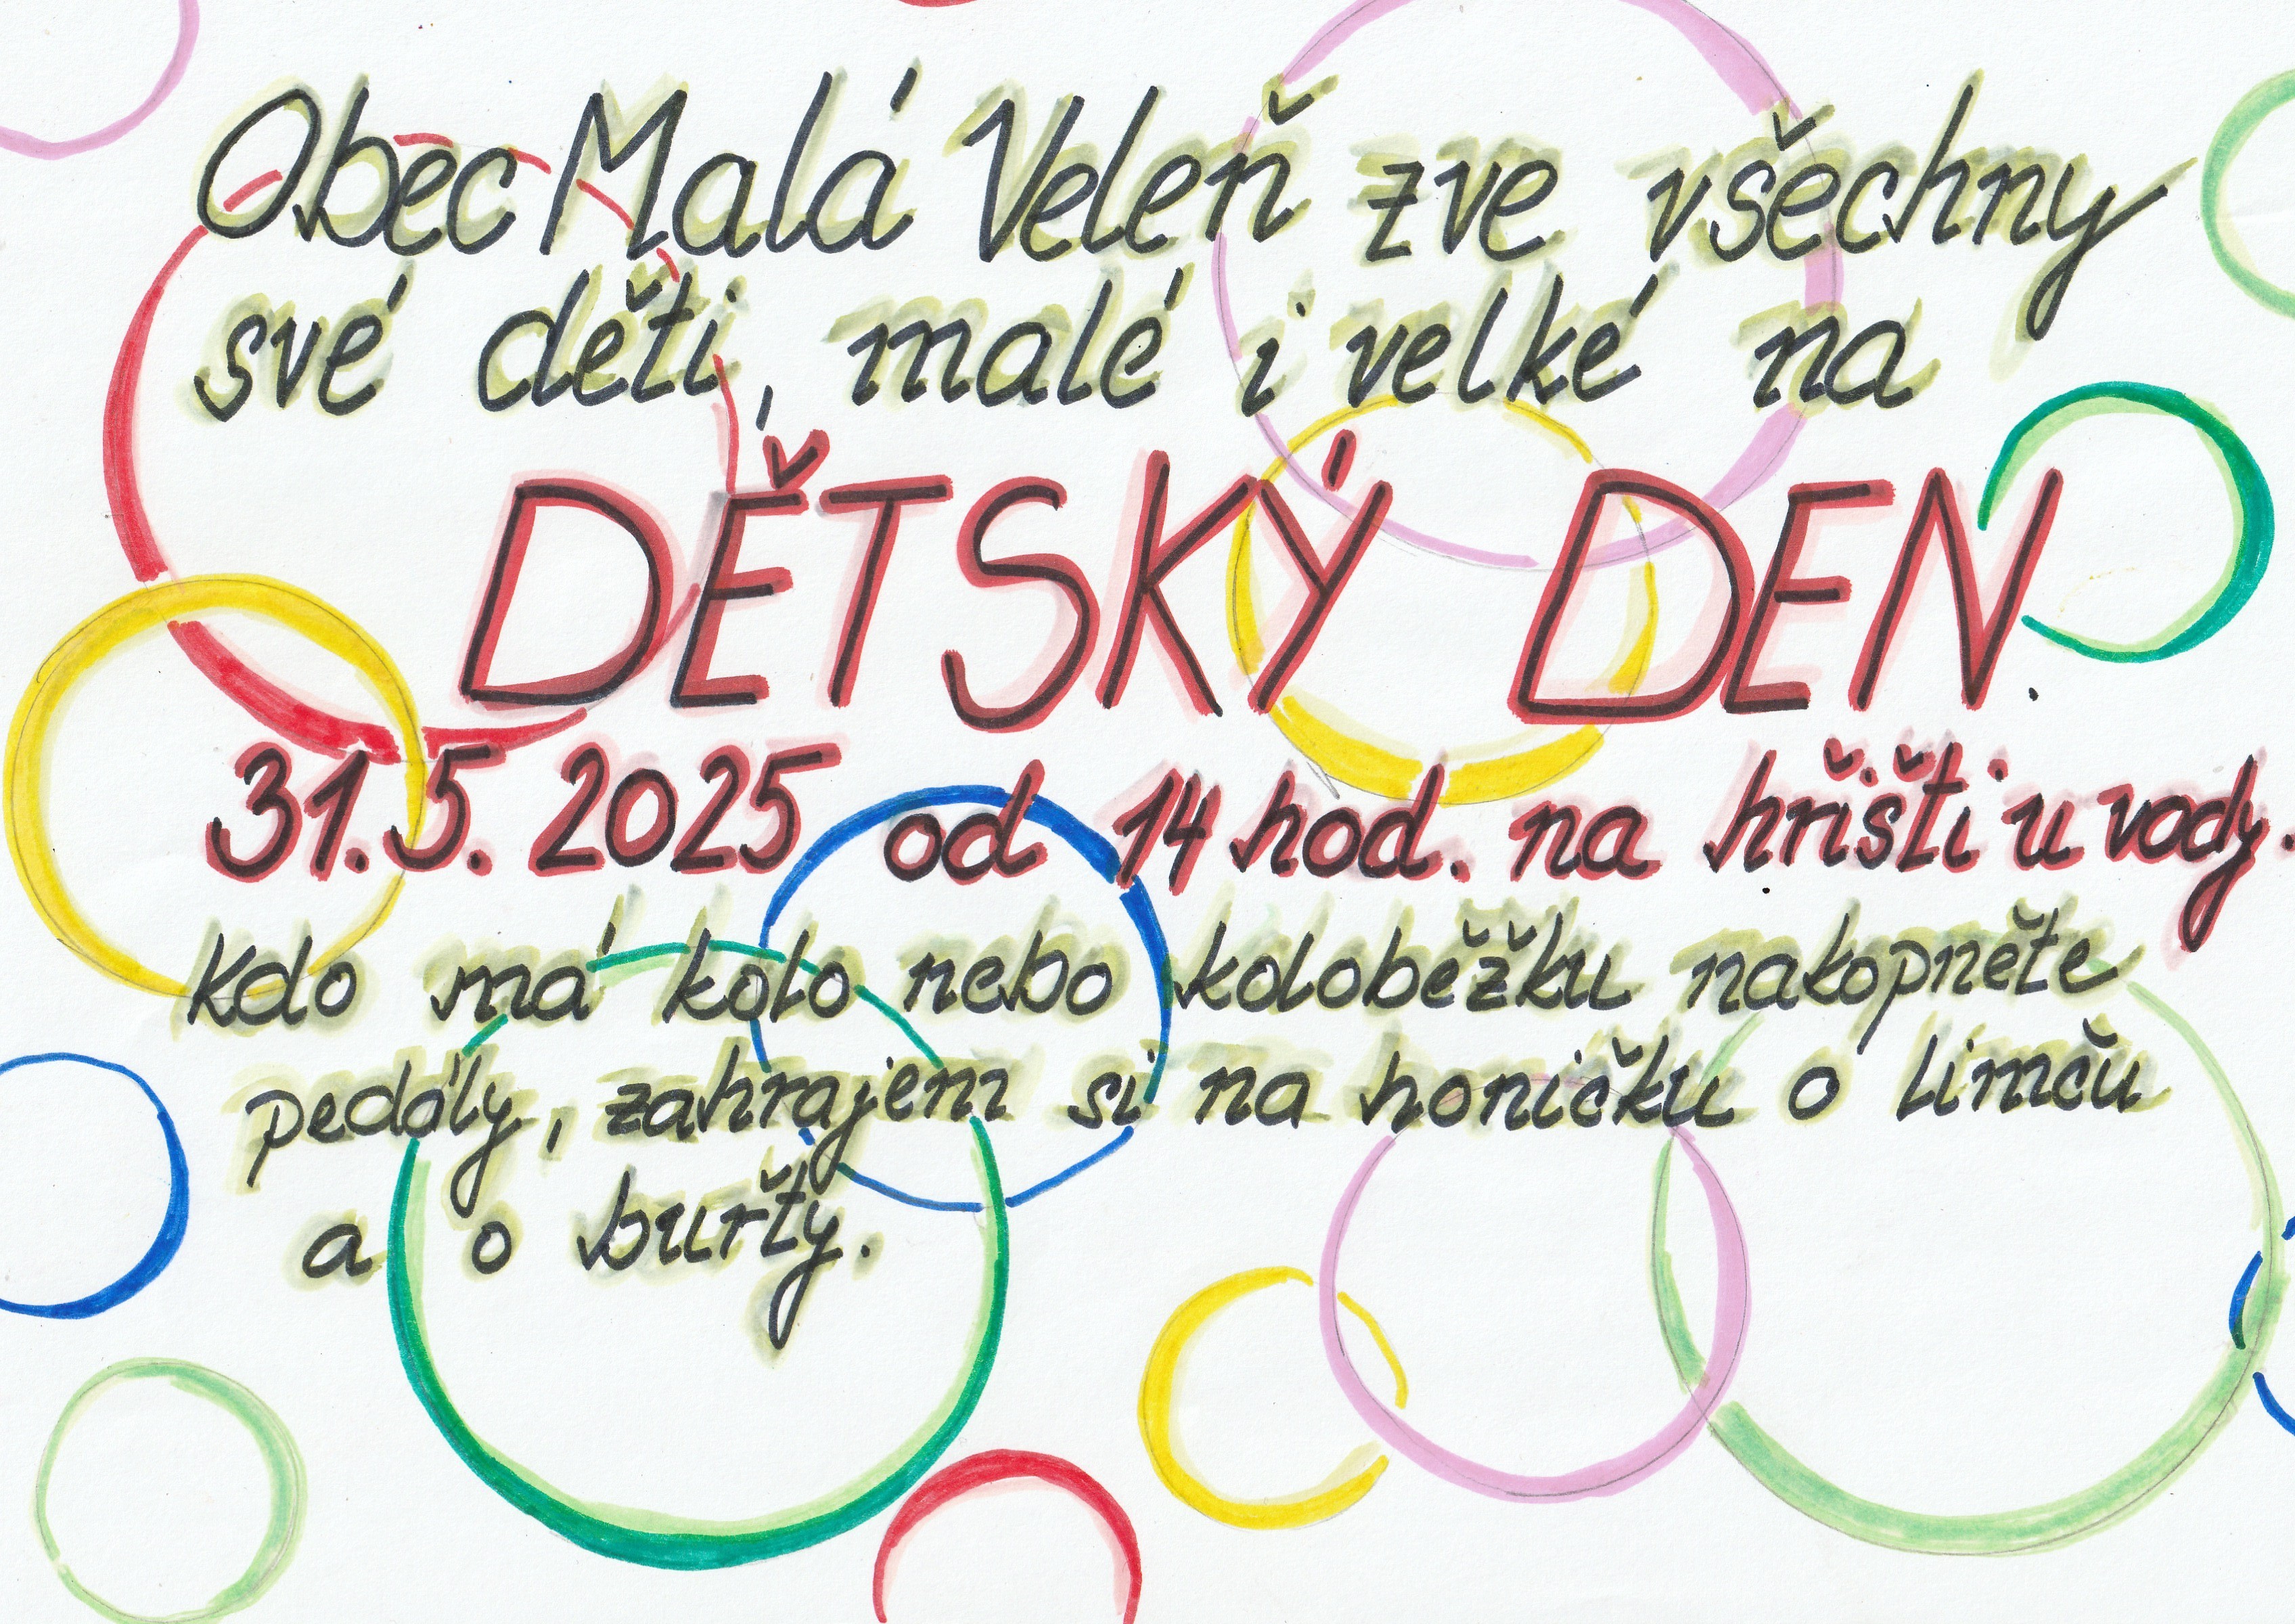 Obec Malá Veleň zve všechny
své děti, malé i velké na
DĚTSKÝ DEN.
31.5. 2025 od 14 hod. na hřišti u vody.
Kdo má kolo nebo koloběžku nakopněte
pedály, zahrajem si na honičku o limču
a o buřty.